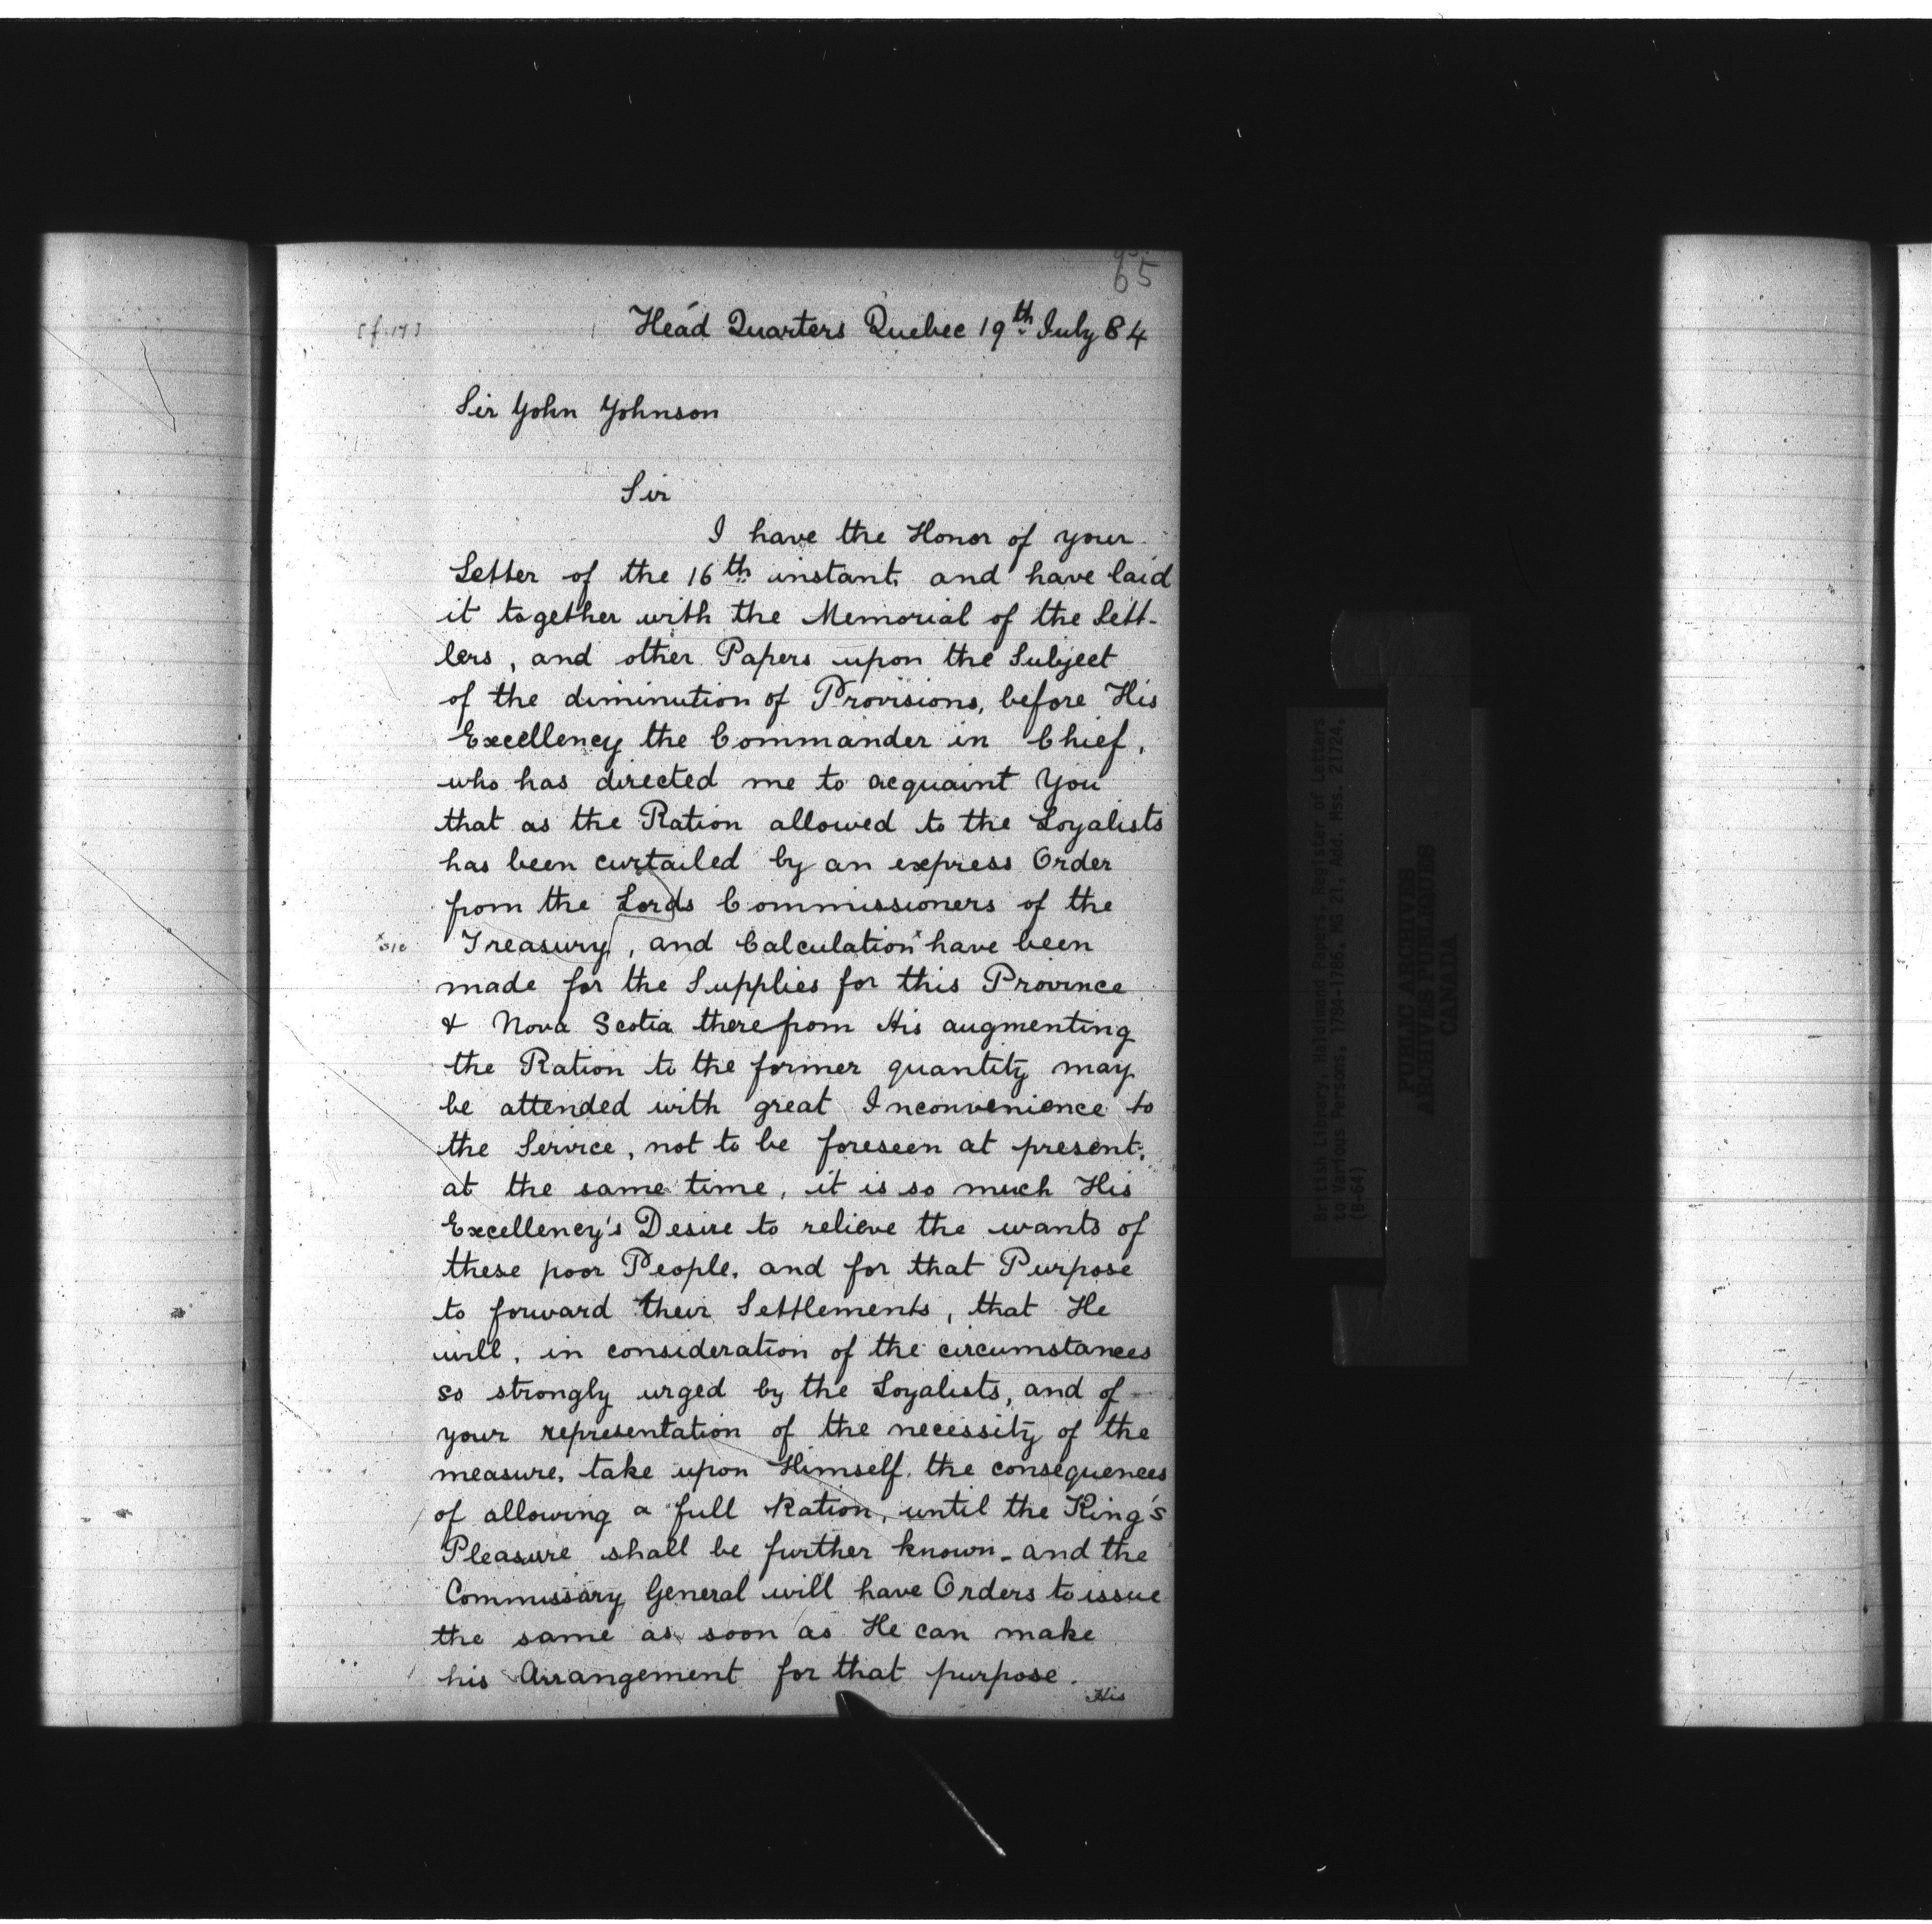 65
[f. 17]
Head Quarters Quebec 19th July 84
Sir John Johnson
Sir
I have the Honor of your
Letter of the 16th instant, and have laid
it together with the Memorial of the Sett-
lers, and other Papers upon the Subject
of the diminution of Provisions, before His
Excellency the Commander in Chief,
who has directed me to acquaint You
that as the Ration allowed to the Loyalists
has been curtailed by an express Order
from the Lords Commissioners of the
x sic
Treasury, and Calculation x have been
made for the Supplies for this Province
& Nova Scotia therefrom His augmenting
the Ration to the former quantity may
be attended with great Inconvenience to
the Service, not to be foreseen at present;
at the same time, it is so much His
Excellency's Desire to relieve the wants of
these poor People, and for that Purpose
to forward their Settlements, that He
will, in consideration of the circumstances
so strongly urged by the Loyalists, and of
your representation of the necessity of the
measure, take upon Himself, the consequences
of allowing a full Ration, until the King's
Pleasure shall be further known - and the
Commissary General will have Orders to issue
the same as soon as He can make
his Arrangement for that purpose.
His
British Library. Haldimand Papers. Register of Letters
to Various Persons, 1784-1786. MG 21, Add. Mss. 21724,
(B-64)
PUBLIC ARCHIVES
ARCHIVES PUBLIQUES
CANADA